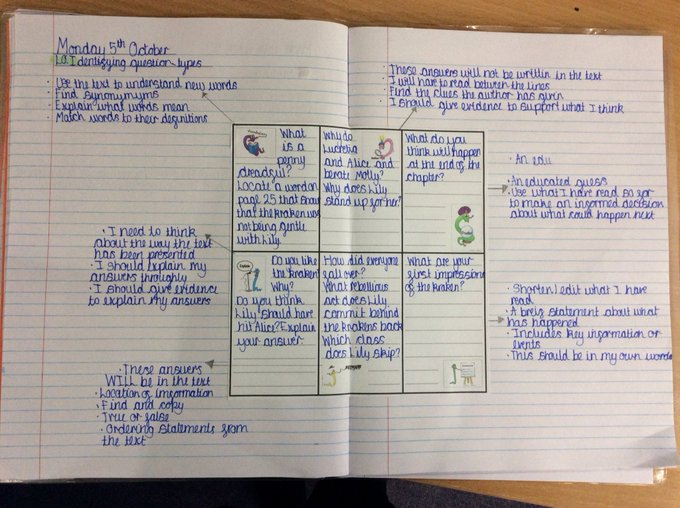 Monday 5th October
LO: Identifying question types
· Use the text to understand new words
· Find synonymyms
· Explain what words mean
· Match words to their definitions
· These answers will not be written in the text
· I will have to read between the lines
· Find the clues the author has given
· I should give evidence to support what I think
What
is a
penny
dreadful?
Locate a word on
page 25 that shows
that the kraken was
not being gentle
with Lily.
Why do
Lucretia
and Alice and
berate Molly?
Why does Lily
stand up for her?
What do you
think will happen
at the end of the
chapter?
· An edu
· An educated guess
· Use what I have read so far
to make an informed decision
about what could happen next
· I need to think
about the way the text
has been presented
· I should explain my
answers throughly
· I should give evidence
to explain my answers
Explain
Do you like
the kraken?
Why?
Do you think
Lily should have
hit Alice? Explain
your answer
How did everyone
fall over?
What rebellious
act does Lily
commit behind
the krakens back
Which class
does Lily skip?
What are your
first impressions
of the kraken?
· Shorten/edit what I have
read
· A breif statement about what
has happened
· Includes key information or
events
· This should be in my own words
· These answers
WILL be in the text
· Location of information
· Find and copy
· True or false
· Ordering statements from
the text